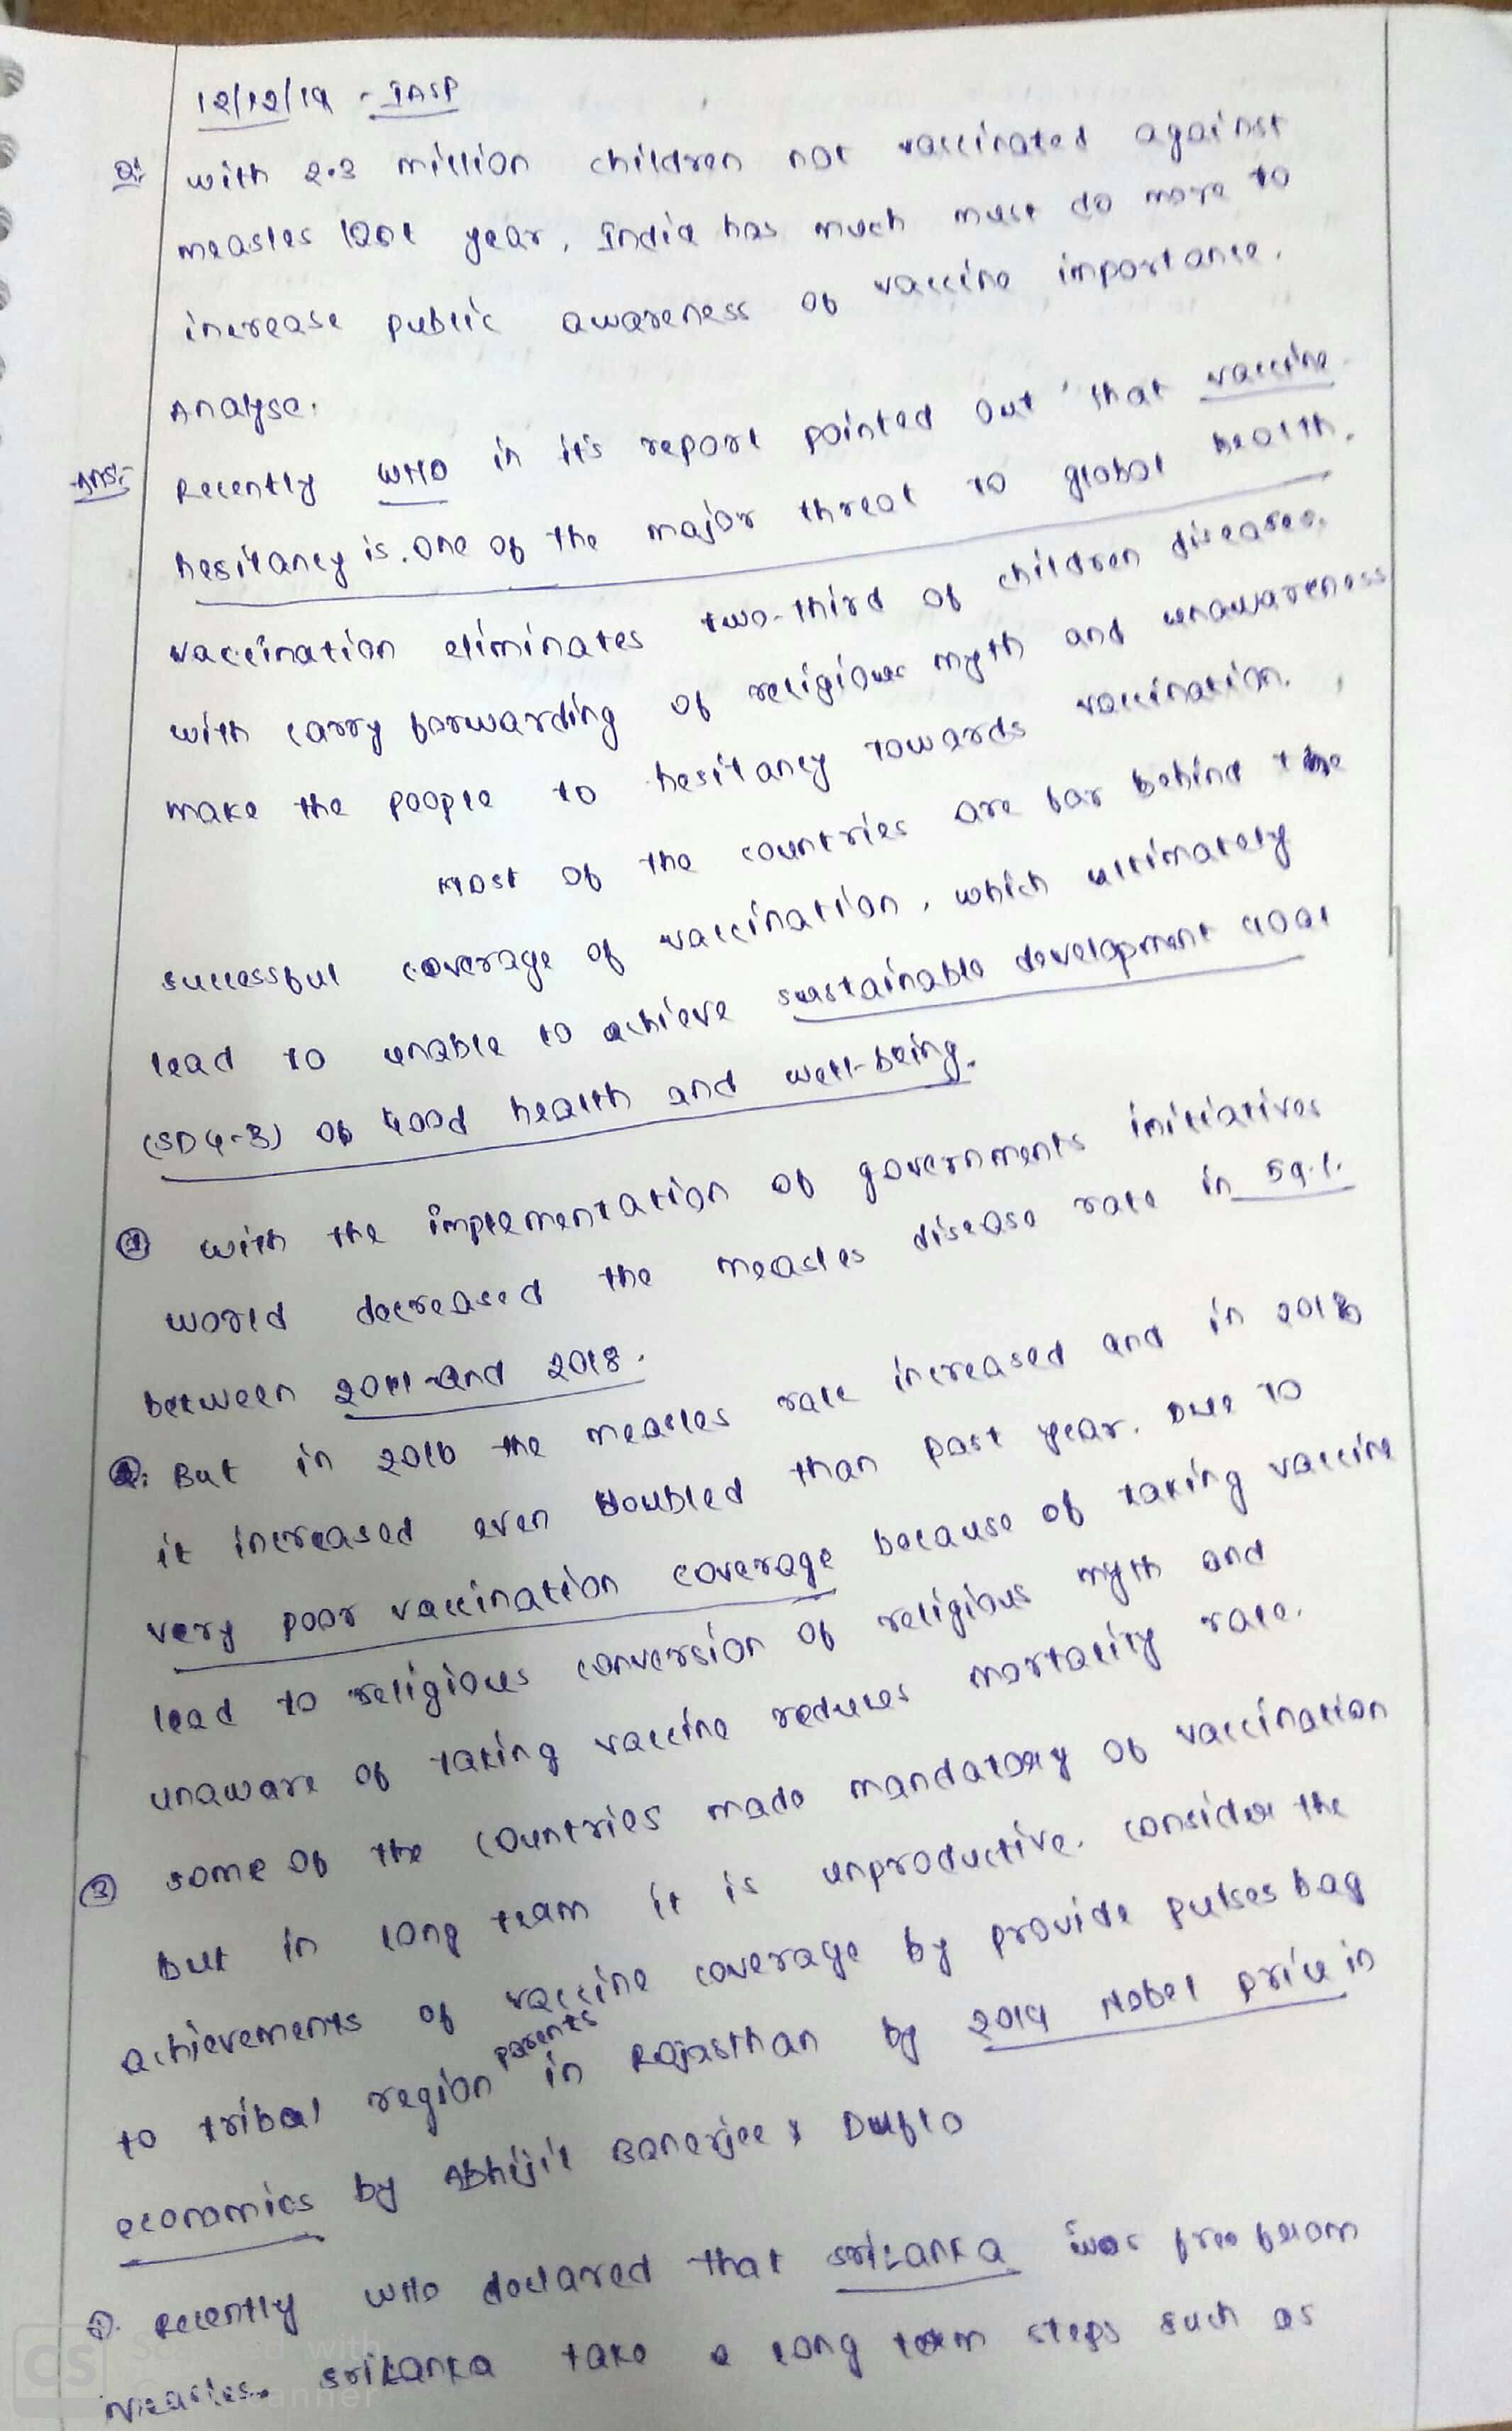 12/12/19 - IASP
Q: with 2.3 million children not vaccinated against
measles last year, India has much must do more to
increase public awareness of vaccine importance.
Analyse.
Ans:- Recently WHO in it's report pointed out that vaccine
hesitancy is one of the major threat to global health.
vaccination eliminates two-third of children diseases.
with carry forwarding of religious myth and unawareness
make the people to hesitancy towards vaccination.
Most of the countries are far behind the
successful coverage of vaccination, which ultimately
lead to unable to achieve sustainable development Goal
(SDG-3) of Good health and well-being.
① with the implementation of governments initiatives
world decreased the measles disease rate in 59%
between and 2018.
②: But in 2016 the measles rate increased and in 2018
it increased even doubled than past year. Due to
very poor vaccination coverage because of taking vaccine
lead to religious conversion of religious myth and
unaware of taking vaccine reduces mortality rate.
③ some of the countries made mandatory of vaccination
but in long team it is unproductive. consider the
achievements of vaccine coverage by provide pulses bag
to tribal region parents in Rajasthan by 2019 Nobel price in
economics by Abhijit Banerjee & Duflo
④. Recently WHO declared that srilanka was free from
Measles. srilanka take a long term steps such as
CS